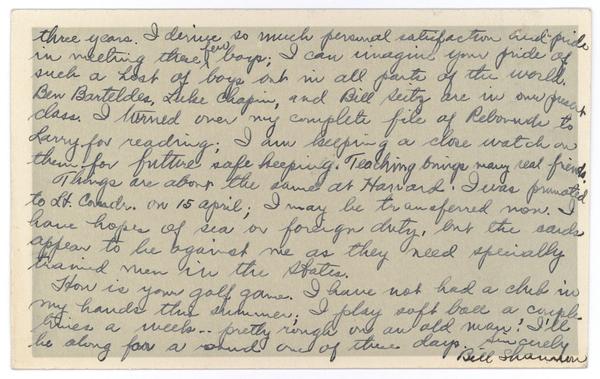 three years. I derive so much personal satisfaction and pride
in meeting these few boys; I can imagine your pride of
such a host of boys out in all parts of the world.
Ben Barteldes, Luke Chapin, and Bill Seitz are in our present
class. I turned over my complete file of to
Larry for reading; I am keeping a close watch on
them for future safe keeping. Teaching brings many real friends.
Things are about the same at Harvard. I was promoted
to Lt. Comdr. on 15 April; I may be transferred now. I
have hopes of sea or foreign duty, but the cards
appear to be against me as they need specially
trained men in the States.
How is your golf game. I have not had a club in
my hands this summer; I play soft ball a couple
times a week -- pretty rough on an old man! I'll
be along for a round one of these days. Sincerely
Bill Shannon